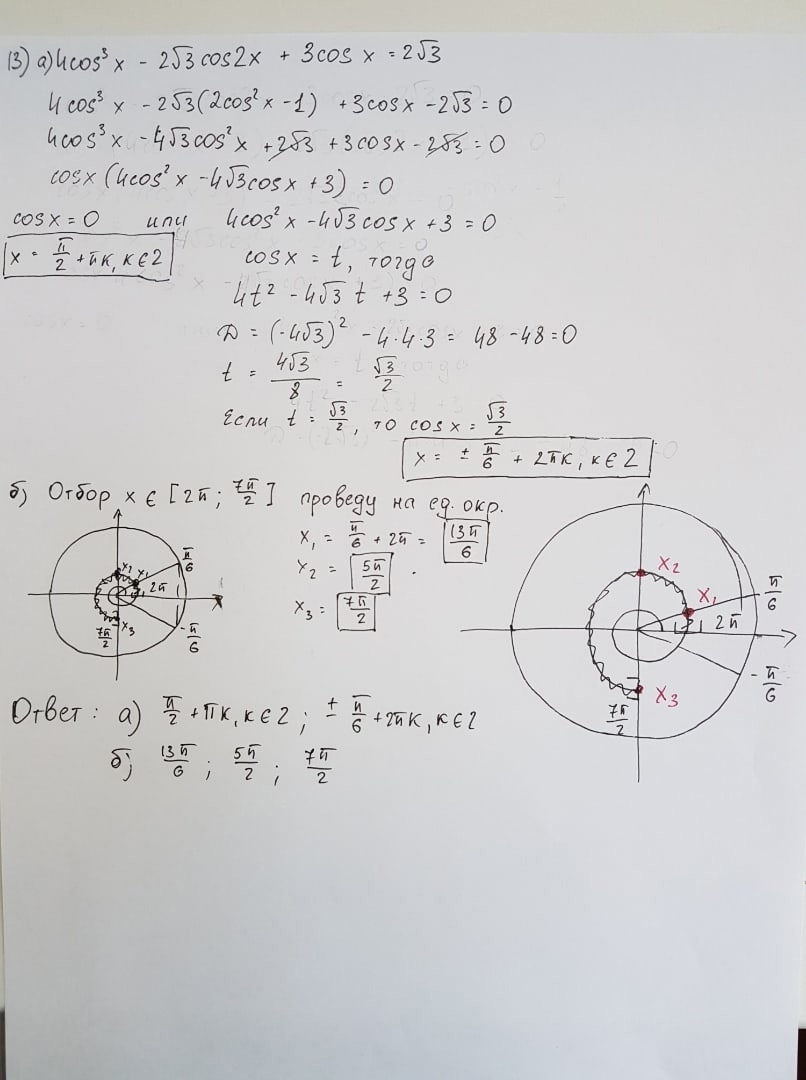 13) а) 4cos³x - 2√3 cos2x + 3cos x = 2√3
4cos³x - 2√3(2cos²x - 1) + 3cosx - 2√3 = 0
4cos³x - 4√3cos²x + 2√3 + 3cosx - 2√3 = 0
cosx(4cos²x - 4√3cosx + 3) = 0
cosx = 0 или 4cos²x - 4√3cosx + 3 = 0
x = π/2 + πk, k∈Z
cosx = t, тогда
4t² - 4√3 t + 3 = 0
D = (-4√3)² - 4·4·3 = 48 - 48 = 0
t = 4√3/8 = √3/2
Если t = √3/2, то cosx = √3/2
x = ± π/6 + 2πk, k∈Z
б) Отбор x∈[2π; 7π/2] проведу на ед. окр.
x₁ = π/6 + 2π = 13π/6
x₂ = 5π/2.
x₃ = 7π/2
x₂ x₁ π/6
2π x
x₃
7π/2 -π/6
x₂
x₁ π/6
2π
-π/6
x₃
7π/2
Ответ: а) π/2 + πk, k∈Z; ± π/6 + 2πk, k∈Z
б) 13π/6; 5π/2; 7π/2